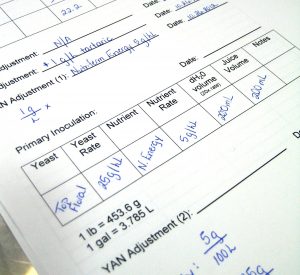 22.2
Date:
Date:
djustment: N/A
djustment: + 1 g/L tartaric
AN Adjustment (1): Nutristem Energy 5g/hL
Date:
1g
L x
Primary Inoculation:
Yeast
Yeast Rate
Nutrient
Nutrient Rate
dH2O volume (20x rate)
Juice Volume
Notes
Top Floral
25g/hL
N. Energy
5g/hL
200mL
200mL
1 lb = 453.6 g
1 gal = 3.785 L
YAN Adjustment (2):
Date:
5g
100L